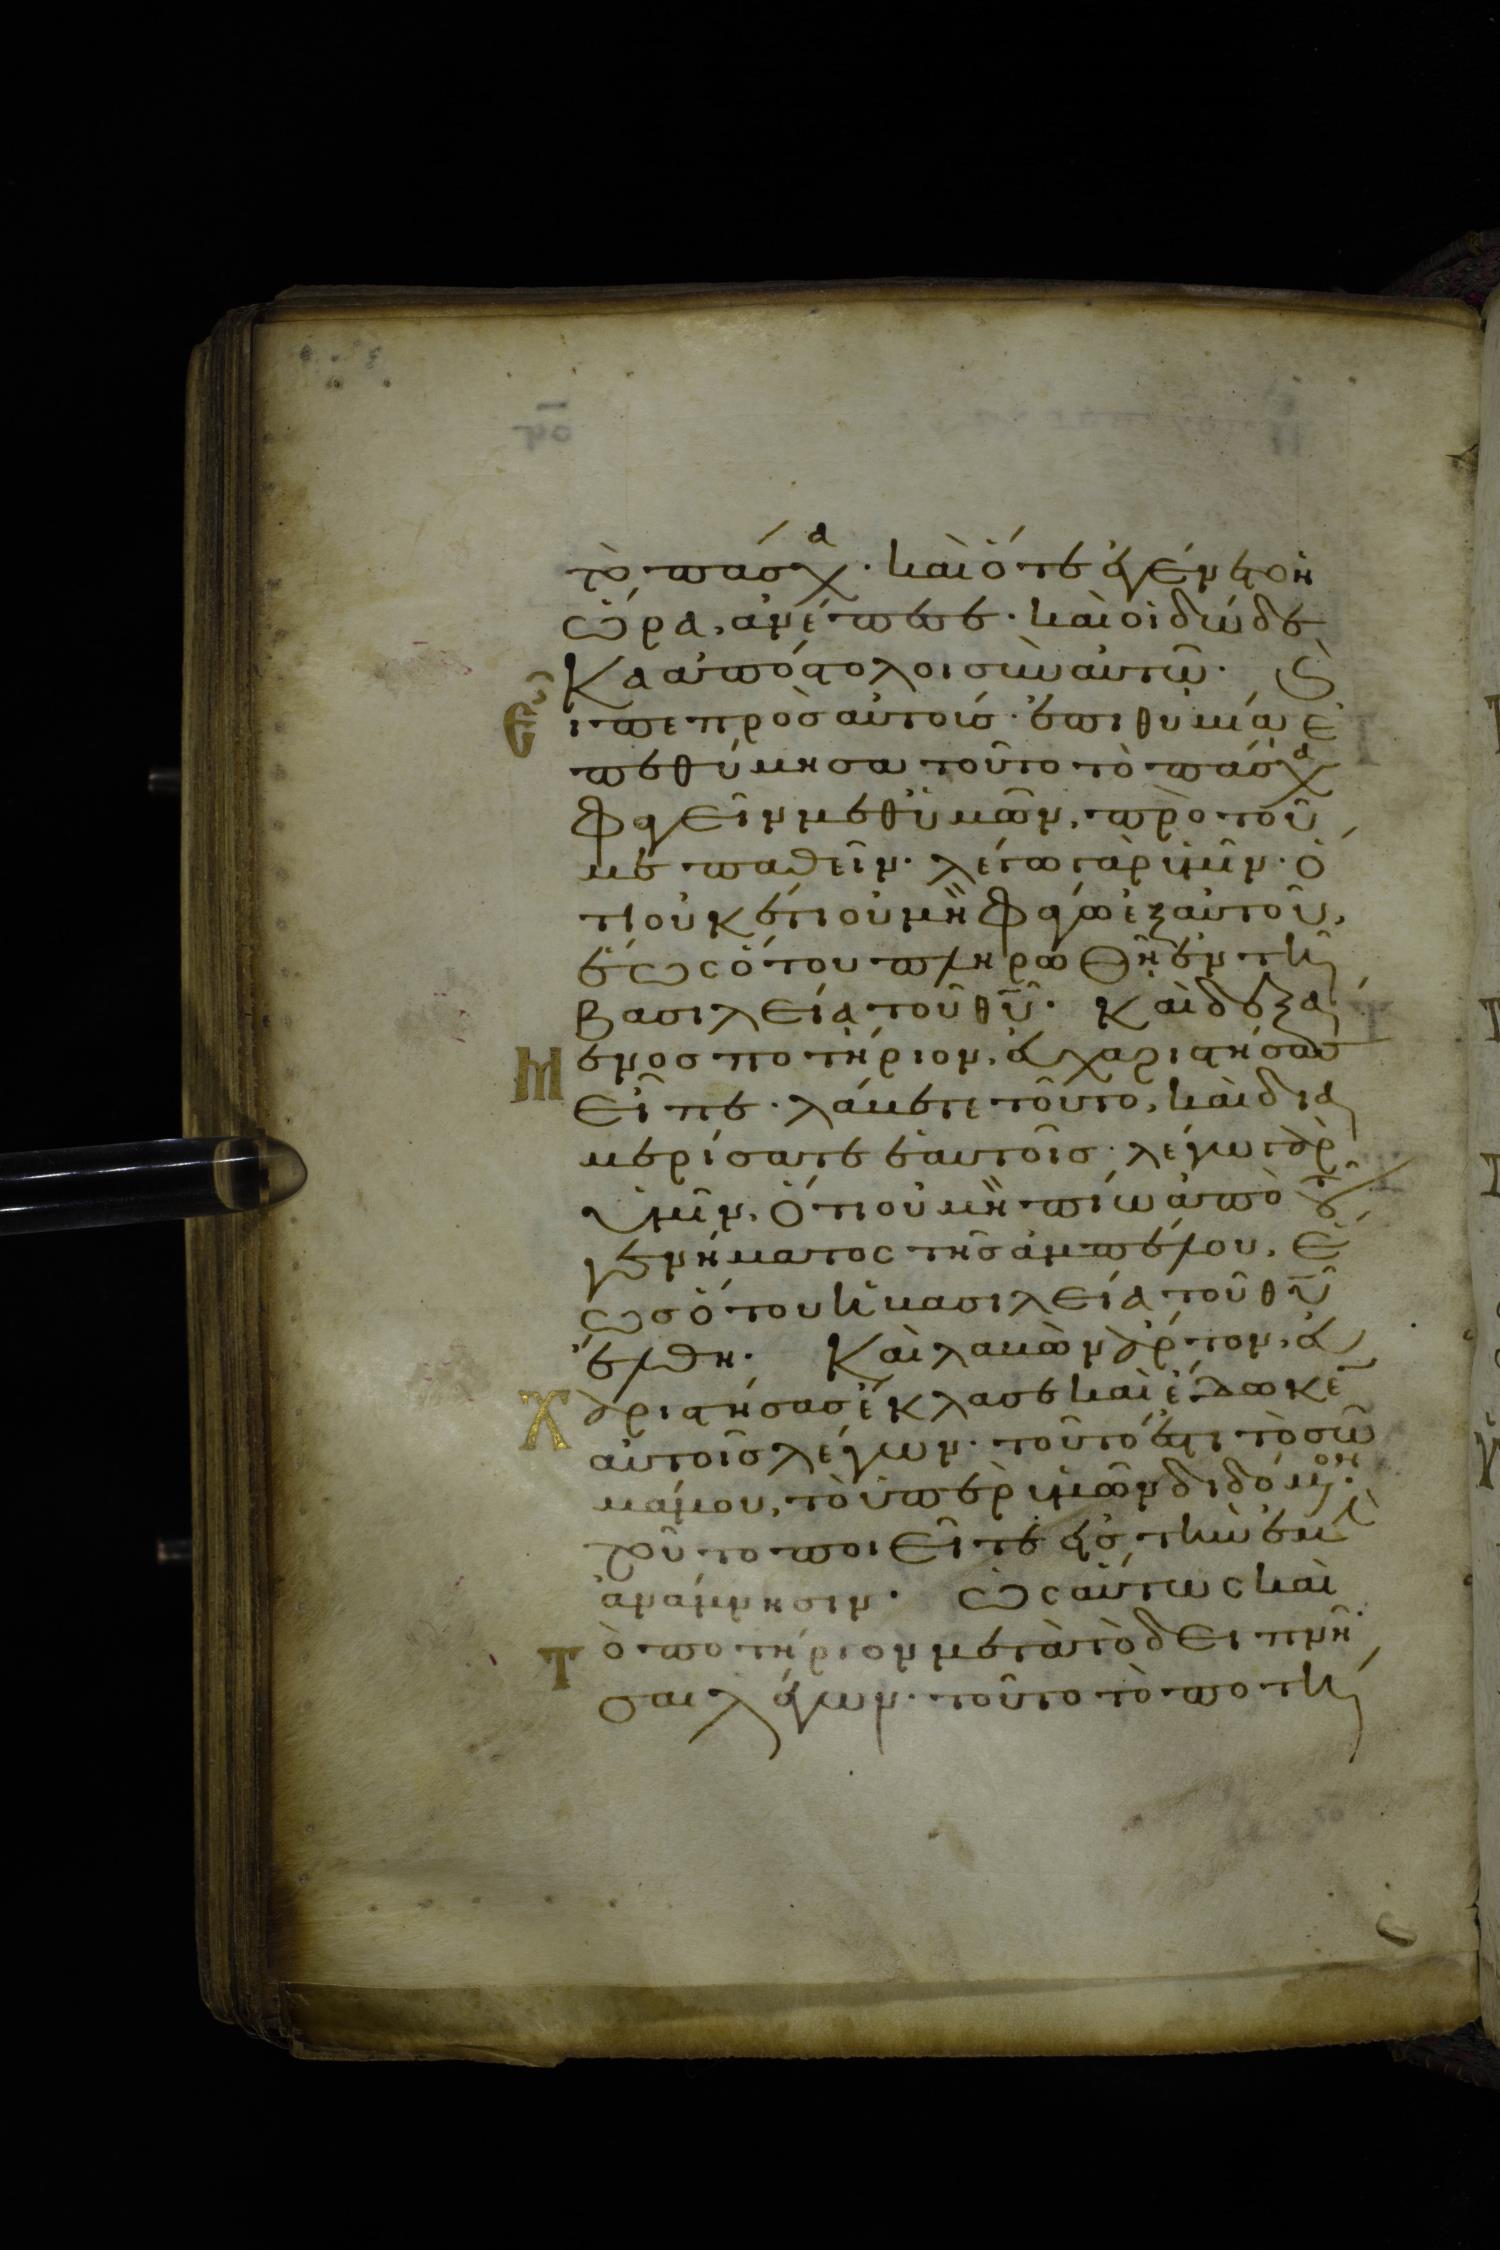 τὸ πάσχα. καὶ ὅτε ἐγένετο ἡ
ὥρα, ἀνέπεσε. καὶ οἱ δώδε
κα ἀπόστολοι σὺν αὐτῶ. καὶ
εἶπε πρὸς αὐτοίς. ἐπιθυμία ἐ
πεθύμησα τοῦτο τὸ πάσχα
φαγεῖν μεθ ὑμῶν, πρὸ τοῦ
με παθεῖν. λέγω γὰρ ὑμῖν. ὅ
τι οὐκέτι οὐ μὴ φάγω ἐξ αὐτοῦ,
ἕως ὅτου πληρωθῆ ἐν τῆ
βασιλεία τοῦ θῦ. Καὶ δεξά
μενος ποτήριον, εὐχαριστήσας
εἶπε. λάβετε τοῦτο, καὶ δια
μερίσατε ἑαυτοῖς. λέγω γὰρ
ὑμῖν, ὅτι οὐ μὴ πίω ἀπὸ τοῦ
γεννήματος τῆς ἀμπέλου, ἕ
ως ὅτου ἡ βασιλεία τοῦ θῦ
ἔλθη. Καὶ λαβὼν ἄρτον, εὐ
χαριστήσας ἔκλασε καὶ ἔδωκεν
αὐτοῖς λέγων. τοῦτό ἐστι τὸ σῶ
μά μου, τὸ ὑπὲρ ὑμῶν διδόμενον.
τοῦτο ποιεῖτε εἰς τὴν ἐμὴν
ἀνάμνησιν. Ὡσαύτως καὶ
τὸ ποτήριον μετὰ τὸ δειπνῆ
σαι λέγων. τοῦτο τὸ ποτή